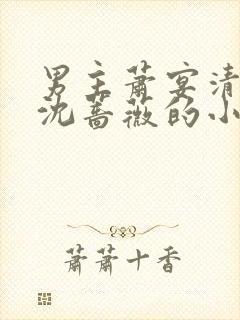 男主萧宴清
沈蔷薇的小
萧萧十香